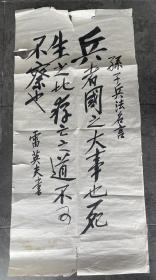 孫子兵法名言
兵者國之大事也死
生之地存亡之道不可
不察也
雷英夫書